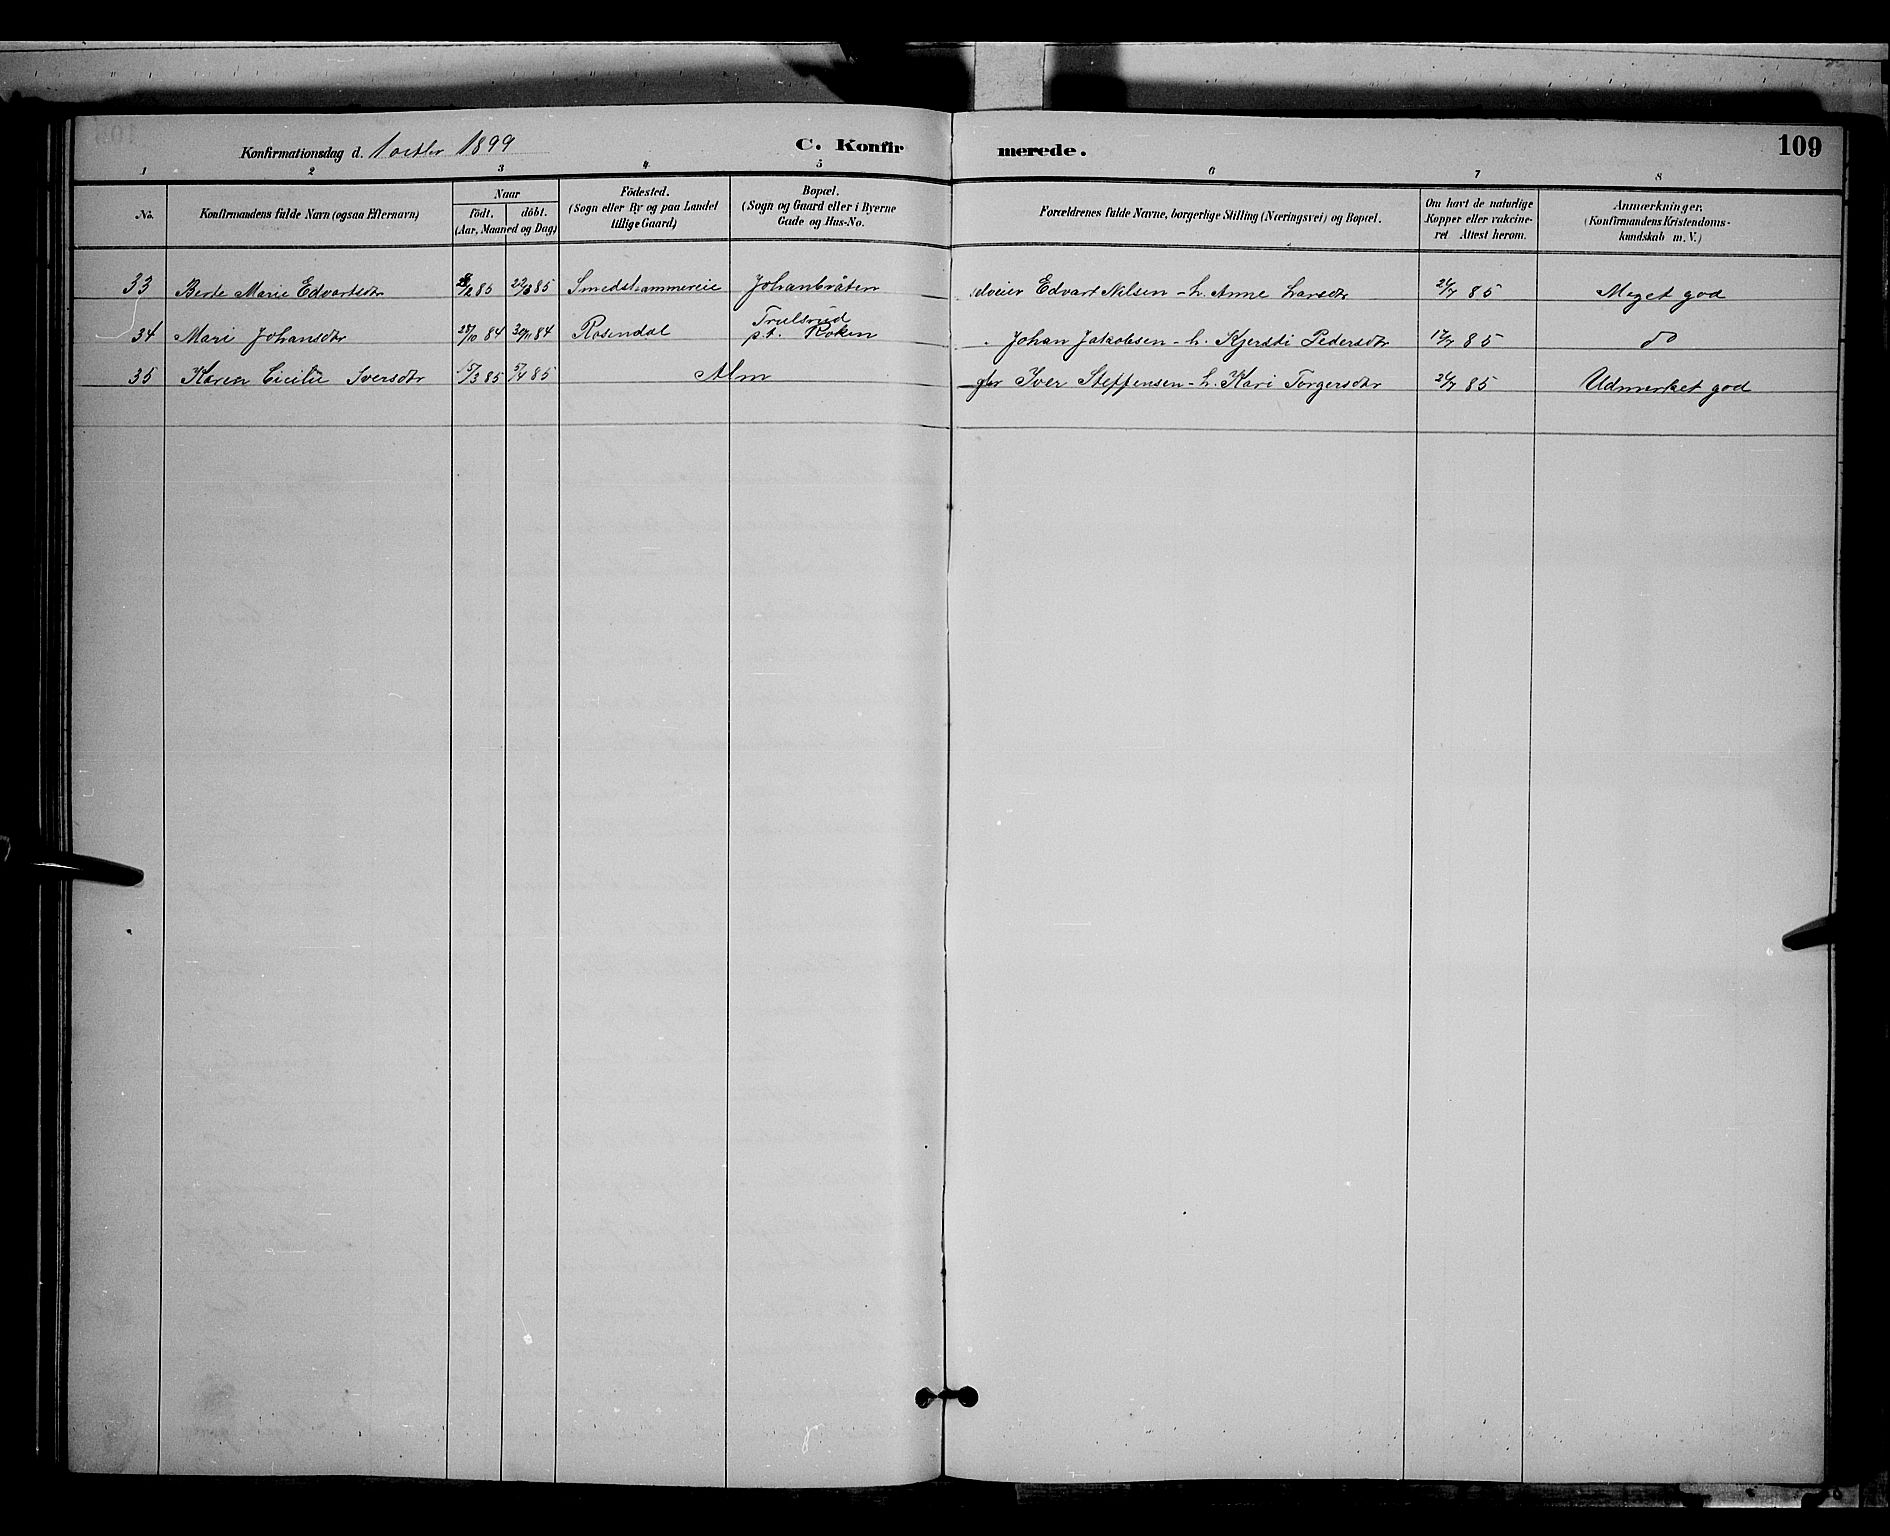 109
Konfirmationsdag d. 1 octbr 1899 C. Konfirmerede.
1 2 3 4 5 6 7 8
No. Konfirmandens fulde Navn (ogsaa Efternavn) Naar födt. döbt. (Aar, Maaned og Dag) Födested. (Sogn eller By og paa Landet tillige Gaard) Bopæl. (Sogn og Gaard eller i Byerne Gade og Hus-No. Forældrenes fulde Navne, borgerlige Stilling (Næringsvei) og Bopæl. Om havt de naturlige Kopper eller vakcineret Attest herom. Anmærkninger, (Konfirmandens Kristendomskundskab m. V.)
33 Berte Marie Edvartsdtr 85 22/3 85 Smedshammereie Johanbråten Edvart Nilsen - h. Anne Larsdtr 24/7 85 Meget god
34 Mari Johansdtr 28/10 84 30/11 84 Rosendal Trulsrud p.t. Røken Johan Jakobsen - h. Kjersti Pedersdtr 17/7 85 do
35 Karen Cicilie Iversdtr 15/3 85 5/4 85 Alm Iver Steffensen - h. Kari Torgersdtr 24/7 85 Udmerket god